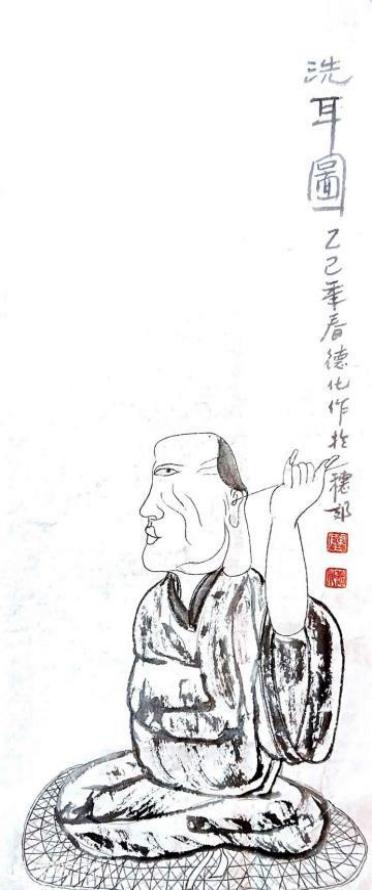 洗耳圖乙巳年春德化作於穗郊